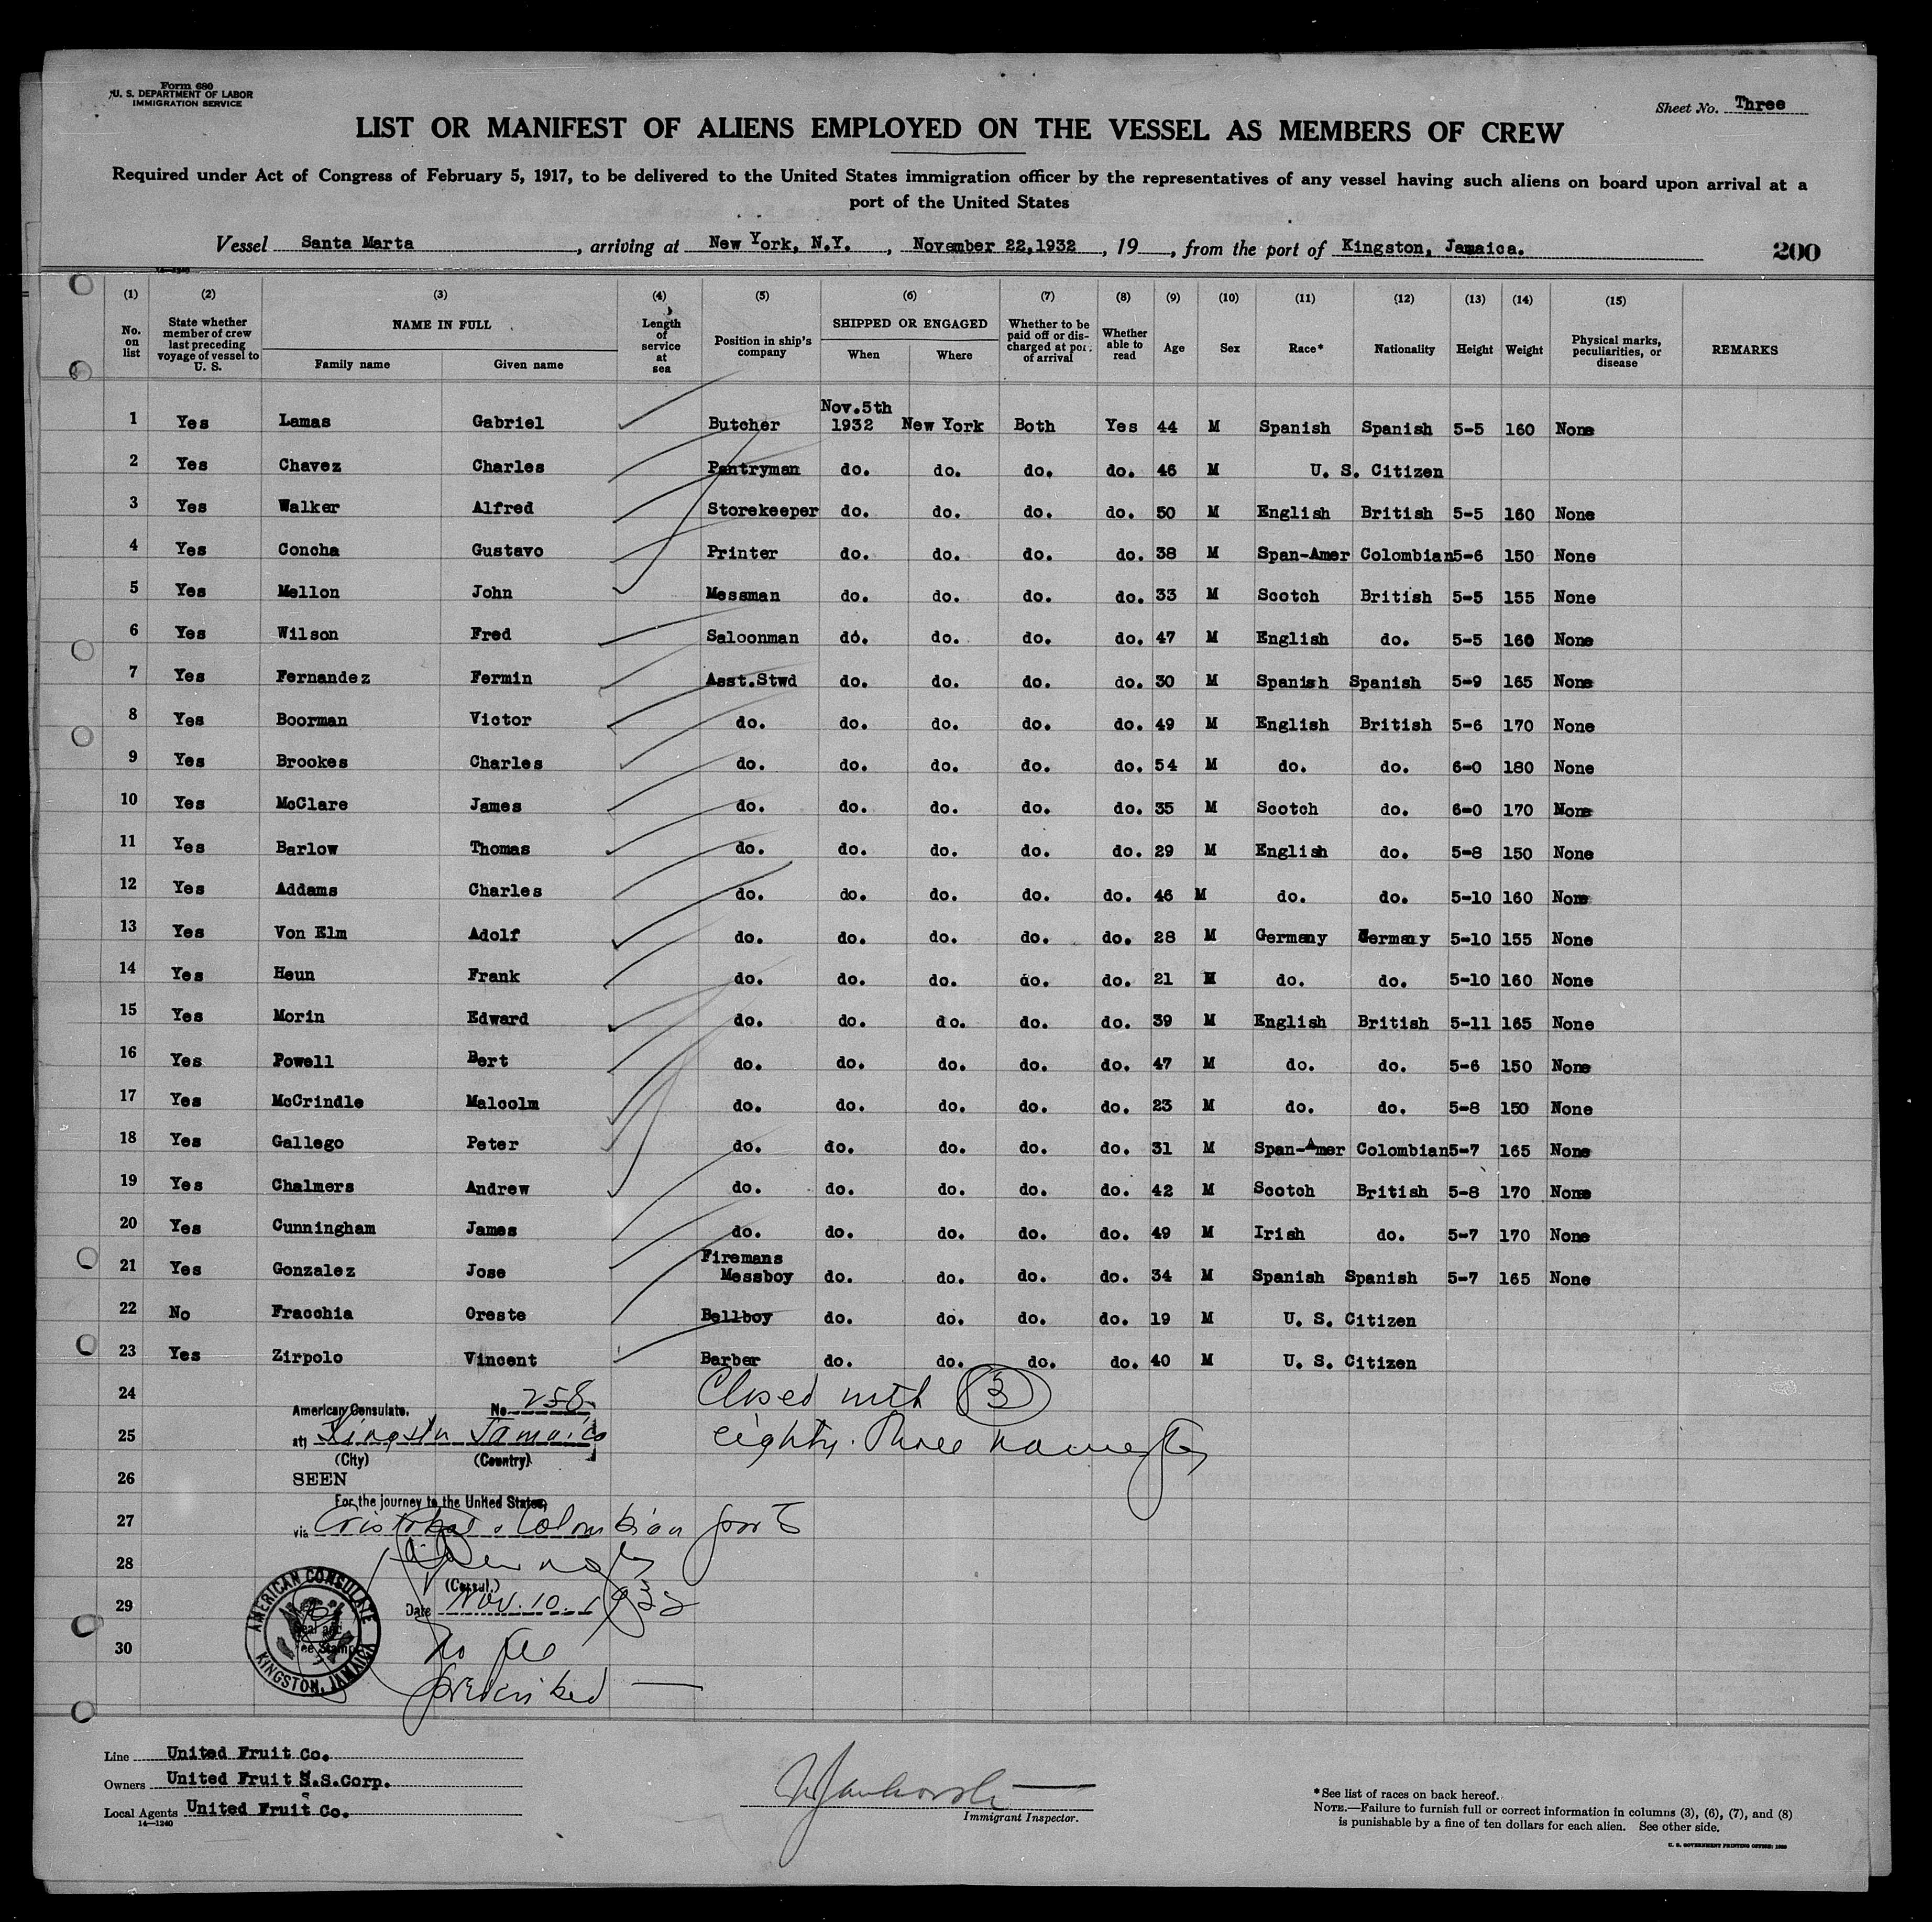 Form 680
U. S. DEPARTMENT OF LABOR
IMMIGRATION SERVICE
Sheet No. Three
LIST OR MANIFEST OF ALIENS EMPLOYED ON THE VESSEL AS MEMBERS OF CREW
Required under Act of Congress of February 5, 1917, to be delivered to the United States immigration officer by the representatives of any vessel having such aliens on board upon arrival at a
port of the United States
Vessel Santa Marta, arriving at New York, N.Y., November 22,1932, 19, from the port of Kingston, Jamaica. 200
14—1240
(1) (2) (3) (4) (5) (6) (7) (8) (9) (10) (11) (12) (13) (14) (15)
No. on list State whether member of crew last preceding voyage of vessel to U. S. NAME IN FULL Family name Given name Length of service at sea Position in ship's company SHIPPED OR ENGAGED When Where Whether to be paid off or discharged at port of arrival Whether able to read Age Sex Race* Nationality Height Weight Physical marks, peculiarities, or disease REMARKS
1 Yes Lamas Gabriel Butcher Nov.5th 1932 New York Both Yes 44 M Spanish Spanish 5-5 160 None
2 Yes Chavez Charles Pantryman do. do. do. do. 46 M U. S. Citizen
3 Yes Walker Alfred Storekeeper do. do. do. do. 50 M English British 5-5 160 None
4 Yes Concha Gustavo Printer do. do. do. do. 38 M Span-Amer Colombian 5-6 150 None
5 Yes Mellon John Messman do. do. do. do. 33 M Scotch British 5-5 155 None
6 Yes Wilson Fred Saloonman do. do. do. do. 47 M English do. 5-5 160 None
7 Yes Fernandez Fermin Asst.Stwd do. do. do. do. 30 M Spanish Spanish 5-9 165 None
8 Yes Boorman Victor do. do. do. do. do. 49 M English British 5-6 170 None
9 Yes Brookes Charles do. do. do. do. do. 54 M do. do. 6-0 180 None
10 Yes McClare James do. do. do. do. do. 35 M Scotch do. 6-0 170 None
11 Yes Barlow Thomas do. do. do. do. do. 29 M English do. 5-8 150 None
12 Yes Addams Charles do. do. do. do. do. 46 M do. do. 5-10 160 None
13 Yes Von Elm Adolf do. do. do. do. do. 28 M Germany Germany 5-10 155 None
14 Yes Heun Frank do. do. do. do. do. 21 M do. do. 5-10 160 None
15 Yes Morin Edward do. do. do. do. do. 39 M English British 5-11 165 None
16 Yes Powell Bert do. do. do. do. do. 47 M do. do. 5-6 150 None
17 Yes McCrindle Malcolm do. do. do. do. do. 23 M do. do. 5-8 150 None
18 Yes Gallego Peter do. do. do. do. do. 31 M Span-Amer Colombian 5-7 165 None
19 Yes Chalmers Andrew do. do. do. do. do. 42 M Scotch British 5-8 170 None
20 Yes Cunningham James do. do. do. do. do. 49 M Irish do. 5-7 170 None
21 Yes Gonzalez Jose Firemans Messboy do. do. do. do. 34 M Spanish Spanish 5-7 165 None
22 No Fracchia Oreste Bellboy do. do. do. do. 19 M U. S. Citizen
23 Yes Zirpolo Vincent Barber do. do. do. do. 40 M U. S. Citizen
24 American Consulate, No. 258 Closed with 83
25 at Kingston Jamaica eighty-three names
(City) (Country)
26 SEEN
For the journey to the United States,
27 via Cristobal & Colombian ports
28
(Consul.)
29 Date Nov. 10. 1932
30 No fee
prescribed —
AMERICAN CONSULATE
KINGSTON, JAMAICA
Seal and
Fee Stamp
Line United Fruit Co.
Owners United Fruit S.S.Corp.
Local Agents United Fruit Co.
14—1240
Immigrant Inspector.
*See list of races on back hereof.
NOTE.—Failure to furnish full or correct information in columns (3), (6), (7), and (8)
is punishable by a fine of ten dollars for each alien. See other side.
U. S. GOVERNMENT PRINTING OFFICE: